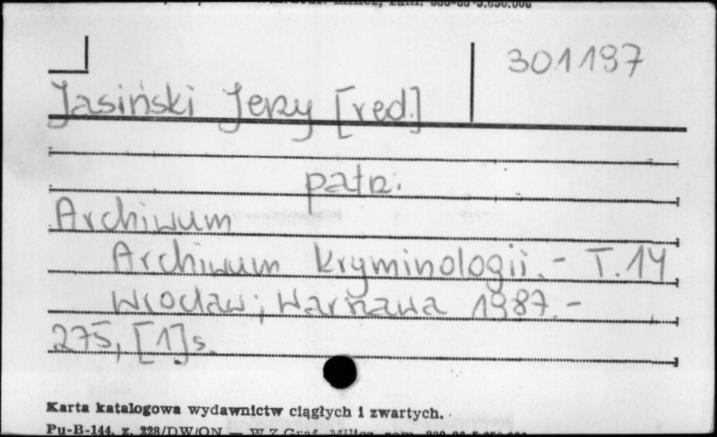 301197
Jasiński Jerzy [red.]
patrz:
Archiwum
Archiwum Kryminologii.- T.14
Wrocław; Warszawa 1987.-
275, [1]s.
Karta katalogowa wydawnictw ciągłych i zwartych.
Pu-B-144, z. 228/DW/ON — WZGraf.